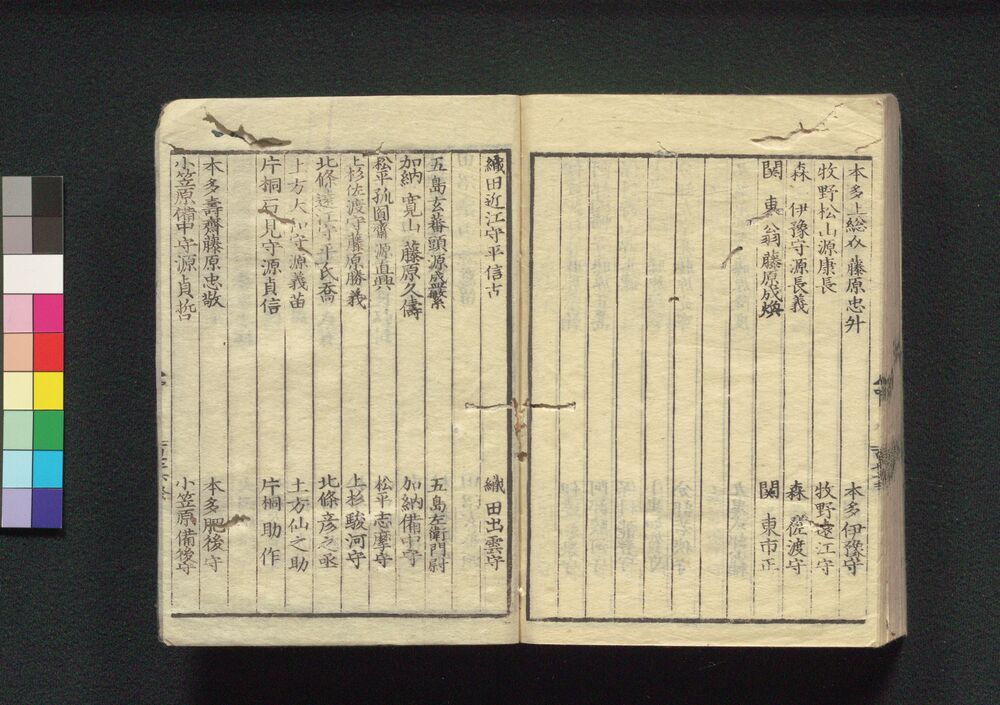 本多上総介 藤原忠升 本多伊豫守
牧野松山源康長 牧野遠江守
森 伊豫守源長義 森 佐渡守
関 東翁藤原成煥 関 東市正
織田近江守平信古 織田出雲守
五島玄蕃頭源盛繁 五島左衛門尉
加納 寛山 藤原久儔 加納備中守
松平 孤圓齋 源直興 松平志摩守
上杉佐渡守藤原勝義 上杉駿河守
北條遠江守平氏喬 北條彦之丞
土方大和守源義苗 土方仙之助
片桐石見守源貞信 片桐助作
本多壽齋藤原忠敬 本多肥後守
小笠原備中守源貞哲 小笠原備後守